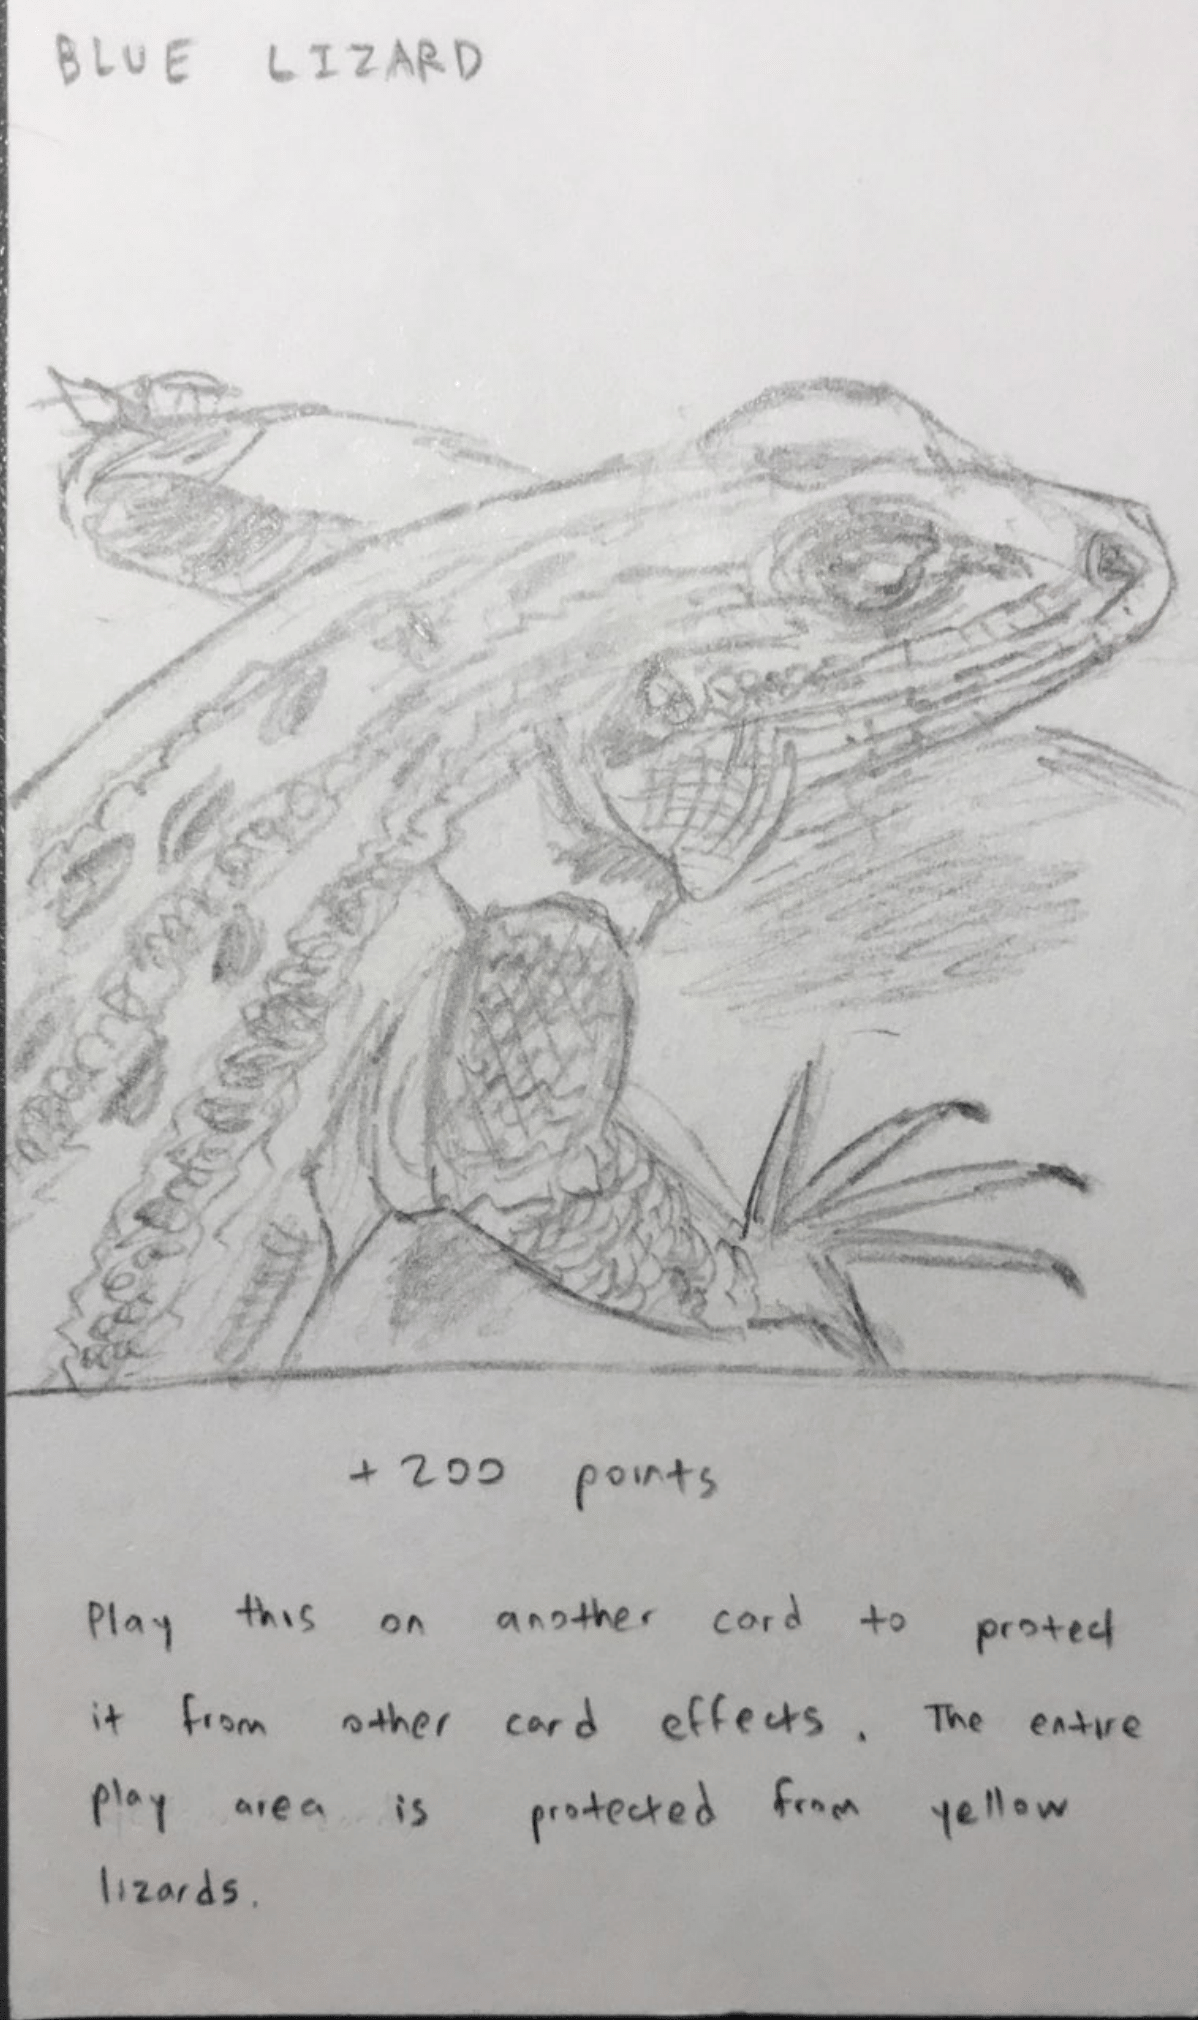 BLUE LIZARD
+200 points
Play this on another card to protect
it from other card effects. The entire
play area is protected from yellow
lizards.